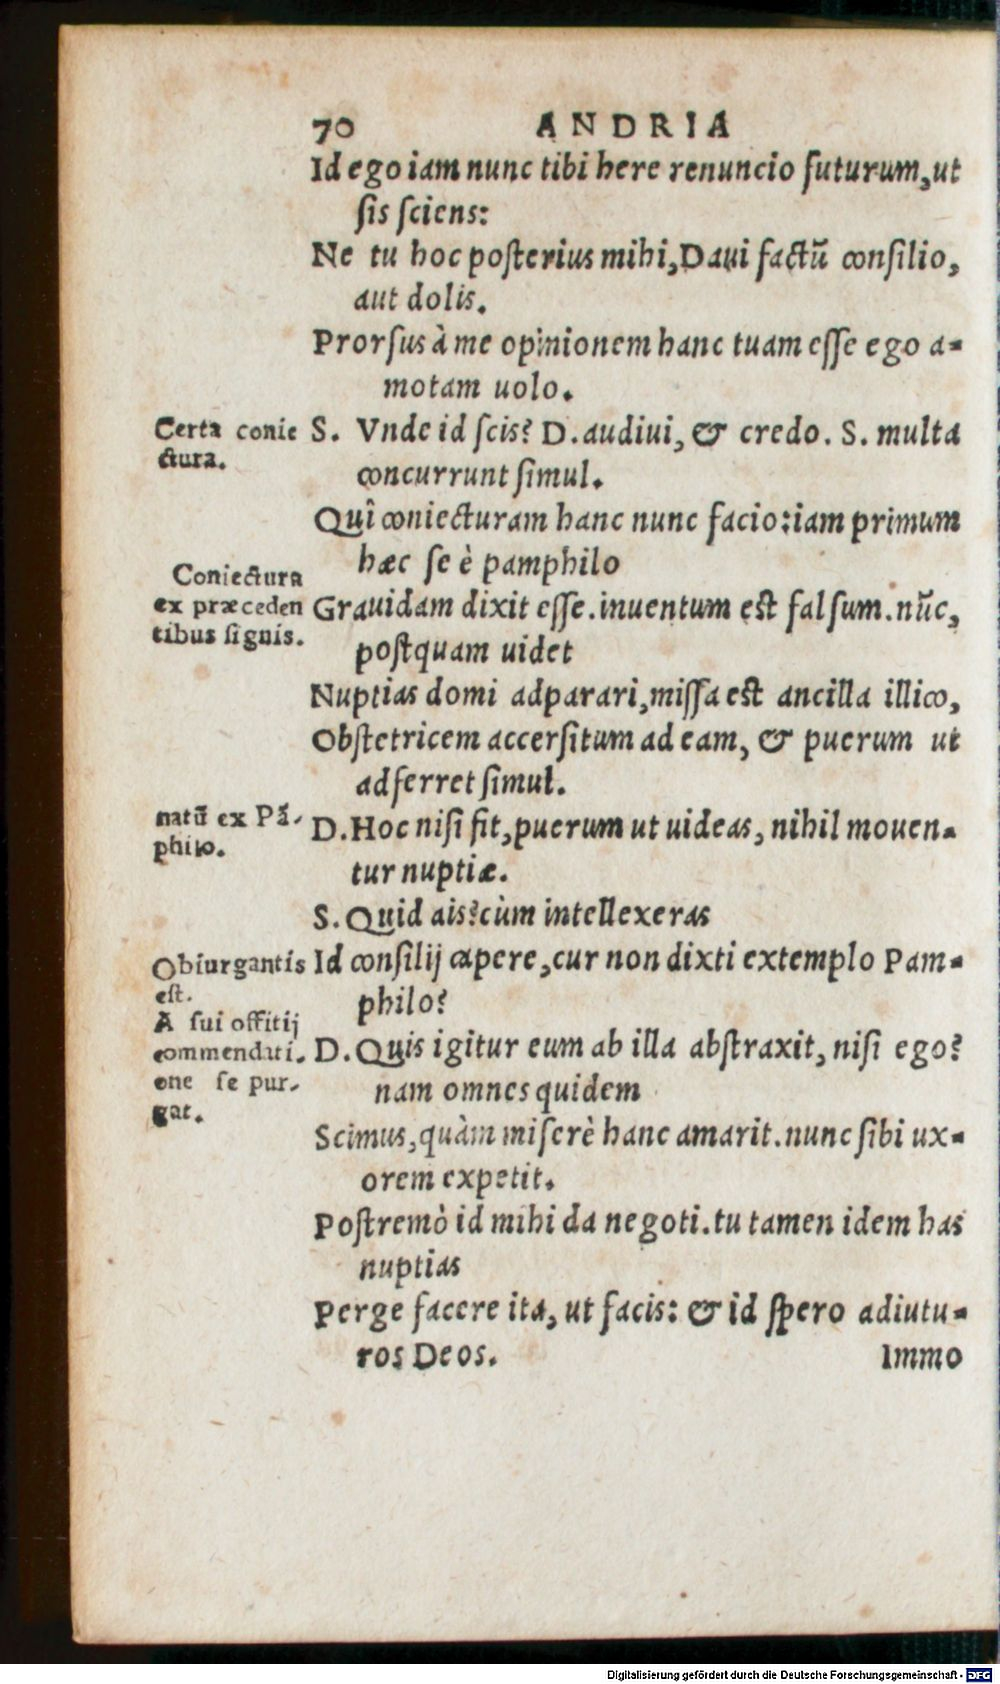 70 ANDRIA
Id ego iam nunc tibi here renuncio futurum, ut
sis sciens:
Ne tu hoc posterius mihi, Daui factū consilio,
aut dolis.
Prorsus à me opinionem hanc tuam esse ego a-
motam uolo.
Certa conie
ctura.
S. Vnde id scis? D. audiui, & credo. S. multa
concurrunt simul.
Quî coniecturam hanc nunc facio: iam primum
hæc se è pamphilo
Coniectura
ex præceden
tibus signis.
Grauidam dixit esse. inuentum est falsum. nūc,
postquam uidet
Nuptias domi adparari, missa est ancilla illico,
Obstetricem accersitum ad eam, & puerum ut
adferret simul.
natū ex Pā-
philo.
D. Hoc nisi fit, puerum ut uideas, nihil mouen-
tur nuptiæ.
S. Quid ais? cùm intellexeras
Obiurgantis
est.
Id consilij capere, cur non dixti extemplo Pam-
philo?
A sui offitij
commendati-
one se pur-
gat.
D. Quis igitur eum ab illa abstraxit, nisi ego?
nam omnes quidem
Scimus, quàm miserè hanc amarit. nunc sibi ux-
orem expetit.
Postremò id mihi da negoti. tu tamen idem has
nuptias
Perge facere ita, ut facis: & id spero adiutu-
ros Deos. Immo
Digitalisierung gefördert durch die Deutsche Forschungsgemeinschaft - DFG